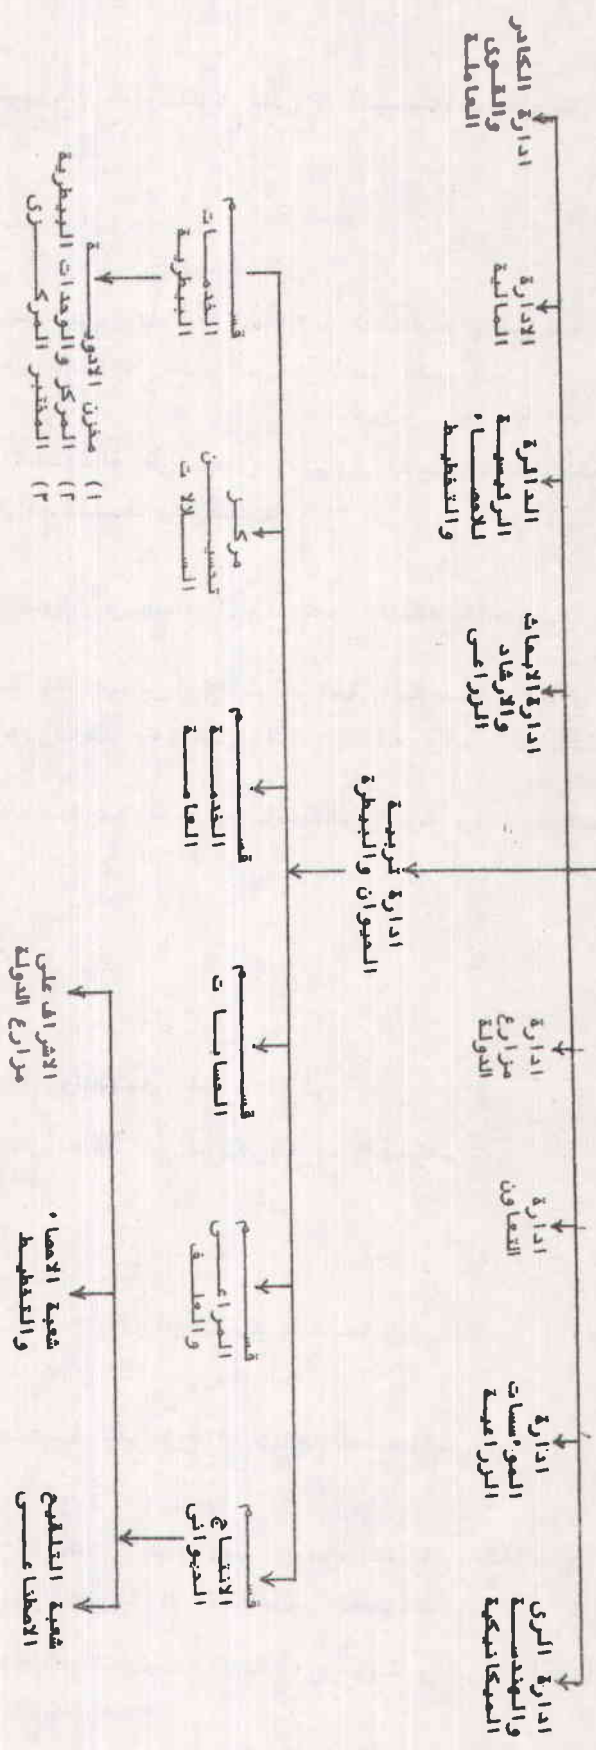 ادارة الكادر
والقوى
العاملة
الادارة
المالية
الدائرة
الرئيسية
للاحصاء
والتخطيط
ادارة الابحاث
والارشاد
الزراعى
ادارة
مزارع
الدولة
ادارة
التعاون
ادارة
المؤسسات
الزراعية
ادارة الرى
والهندسة
الميكانيكية
ادارة تربية
الحيوان والبيطرة
قسم
الخدمات
البيطرية
مركز
تحسين
السلالات
قسم
الخدمة
العامة
قسم
الحسابات
قسم
المراعى
والعلف
قسم
الانتاج
الحيوانى
١) مخزن الادوية
٢) المركز والوحدات البيطرية
٣) المختبر المركزى
الاشراف على
مزارع الدولة
شعبة الاحصاء
والتخطيط
شعبة التلقيح
الاصطناعى